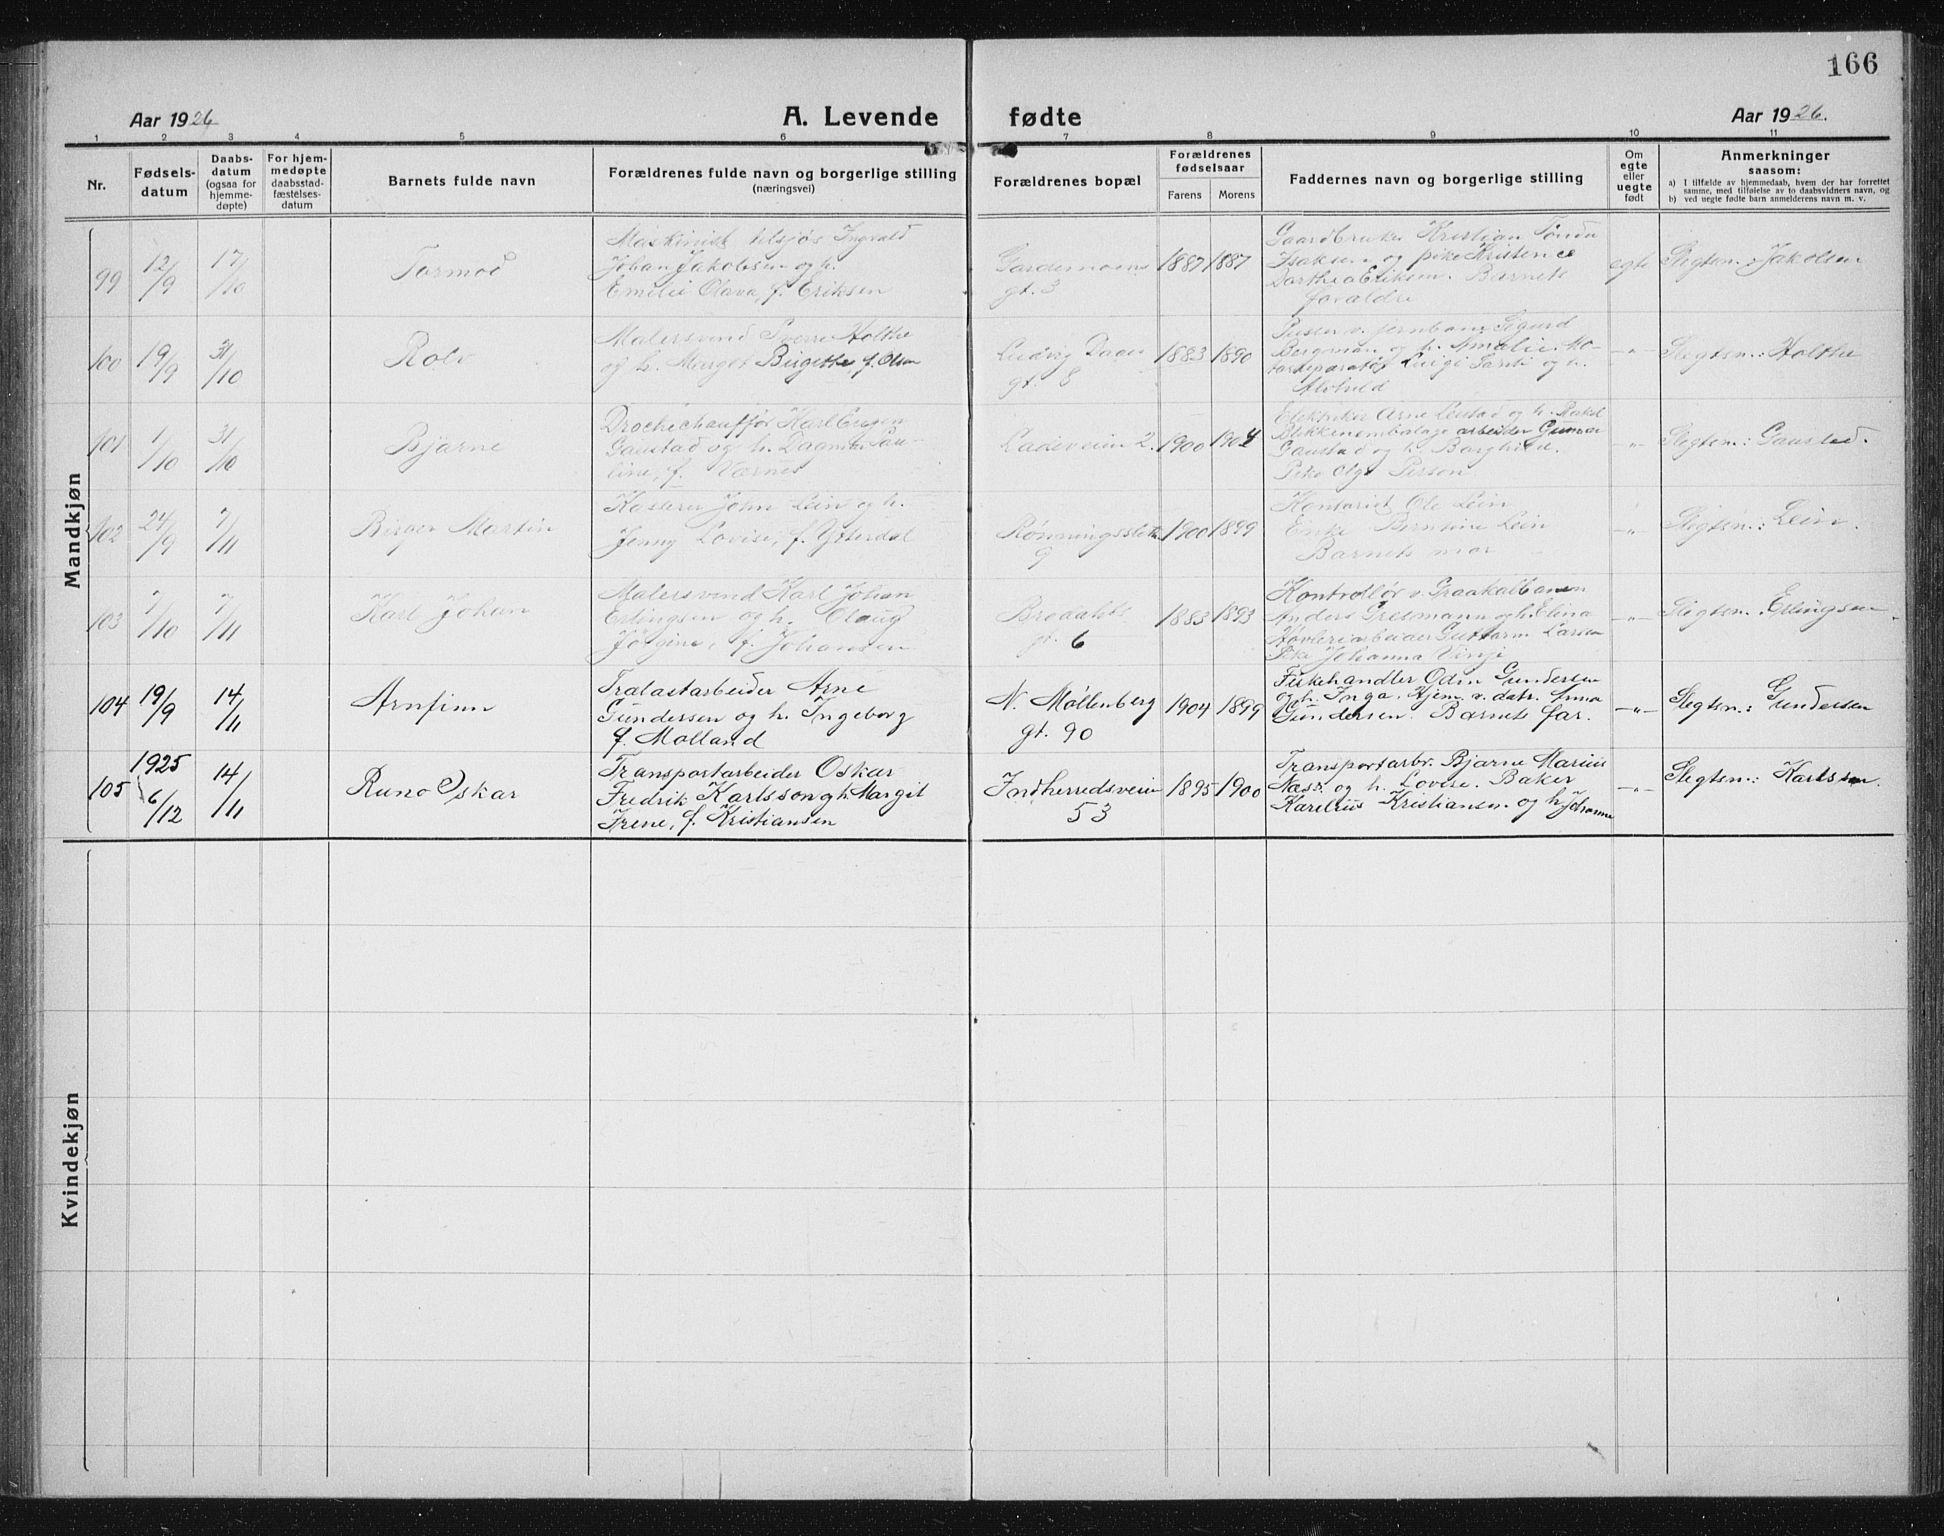 166
Aar 1926
A. Levende fødte
Aar 1926.
1 2 3 4 5 6 7 8 9 10 11
Nr.
Fødsels-
datum
Daabs-
datum
(ogsaa for
hjemme-
døpte)
For hjem-
medøpte
daabsstad-
fæstelses-
datum
Barnets fulde navn
Forældrenes fulde navn og borgerlige stilling
(næringsvei)
Forældrenes bopæl
Forældrenes
fødselsaar
Farens Morens
Faddernes navn og borgerlige stilling
Om
egte
eller
uegte
født
Anmerkninger
saasom:
a) I tilfælde av hjemmedaab, hvem der har forrettet
samme, med tilføielse av to daabsvidners navn, og
b) ved uegte fødte barn anmelderens navn m. v.
Mandkjøn
99
12/9
17/10
Tormod
Maskinist tilsjøs Ingvald
Johan Jakobsen og h.
Emilie Olava, f. Eriksen
Gardemoens
gt. 3
1887 1887
Gaardbruker Kristian Tønda
Isaksen og pike Kristence
Dorthea Eriksen. Barnets
forældre
egte
Slegtsn.: Jakobsen
100
19/9
31/10
Rolv
Malersvend Sverre Holthe
og h. Margot Birgitte f. Olsen
Ludvig Daaes
gt. 8
1883 1890
Pusser v. jernban. Sigurd
Bergman og h. Amalie. Mo-
torreparatør Luigi Santi og h.
Alvhild
-"-
Slegtsn.: Holthe
101
1/10
31/10
Bjarne
Drochechauffør Karl Eugen
Gaustad og h. Dagmar Pau-
line, f. Værnes
Ladeveien 2.
1900 1904
Elektriker Arne Leistad og h. Rakel
Blikkenembalage arbeider Gunnar
Gaustad og h. Borghild.
Pike Olga Person
-"-
Slegtsn.: Gaustad.
102
24/9
7/11
Birger Martin
Kasserer John Lein og h.
Jenny Lovise, f. Ytterdal
Rønningsslette
9
1900 1899
Kontorist Ole Lein
Enke Berntine Lein
Barnets mor
-"-
Slegtsn.: Lein.
103
7/10
7/11
Karl Johan
Malersvend Karl Johan
Erlingsen og h. Olaug
Jørgine, f. Johansen
Brodahls
gt. 6
1883 1893
Kontrollør v. Graakalbanen
Anders Gretsmann og h. Elina
Høvleriarbeider Guttorm Larsen
Pike Johanna Vinje
-"-
Slegtsn.: Erlingsen
104
19/9
14/11
Arnfinn
Trælastarbeider Arne
Gundersen og h. Ingeborg
f. Molland
N. Møllenberg
gt. 90
1904 1899
Fiskehandler Odin Gundersen
og h. Inga. Hjem. v. datr. Anna
Gundersen. Barnets far.
-"-
Slegtsn.: Gundersen
105
1925
6/12
14/11
Runo Oskar
Transportarbeider Oskar
Fredrik Karlsson og h. Margit
Irene, f. Kristiansen
Indherredsveien
53
1895 1900
Transportarbr. Bjarne Marius
Næss og h. Lovise. Baker
Karelius Kristiansen og h. Johanne
-"-
Slegtsn.: Karlsson.
Kvindekjøn